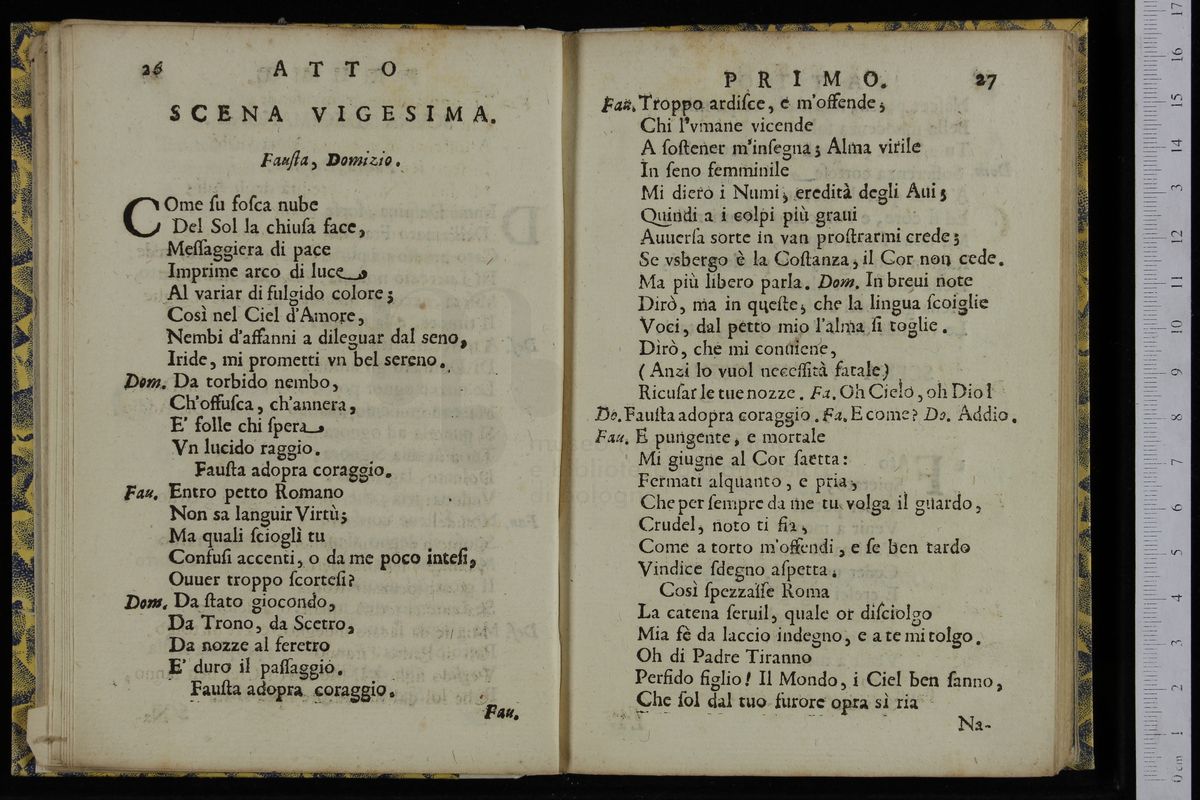 26 ATTO
SCENA VIGESIMA.
Fauſta, Domizio.
COme ſu foſca nube
Del Sol la chiuſa face,
Meſſaggiera di pace
Imprime arco di luce,
Al variar di fulgido colore;
Così nel Ciel d'Amore,
Nembi d'affanni a dileguar dal seno,
Iride, mi prometti vn bel sereno.
Dom. Da torbido nembo,
Ch'offuſca, ch'annera,
E' folle chi ſpera,
Vn lucido raggio.
Fauſta adopra coraggio.
Fau. Entro petto Romano
Non sa languir Virtù;
Ma quali ſcioglì tu
Confuſi accenti, o da me poco inteſi,
Ouuer troppo ſcorteſi?
Dom. Da ſtato giocondo,
Da Trono, da Scetro,
Da nozze al feretro
E' duro il paſſaggio.
Fauſta adopra coraggio.
Fau.
PRIMO. 27
Fau. Troppo ardiſce, e m'offende;
Chi l'vmane vicende
A ſoſtener m'inſegna; Alma virile
In ſeno femminile
Mi diero i Numi, eredità degli Aui;
Quindi a i colpi più graui
Auuerſa sorte in van proſtrarmi crede;
Se vsbergo è la Coſtanza, il Cor non cede.
Ma più libero parla. Dom. In breui note
Dirò, ma in queſte, che la lingua ſcioiglie
Voci, dal petto mio l'alma ſi toglie.
Dirò, che mi conuiene,
(Anzi lo vuol neceſſità fatale)
Ricuſar le tue nozze. Fa. Oh Cielo, oh Dio!
Do. Fauſta adopra coraggio. Fa. E come? Do. Addio.
Fau. E pungente, e mortale
Mi giugne al Cor ſaetta:
Fermati alquanto, e pria,
Che per ſempre da me tu volga il guardo,
Crudel, noto ti ſia,
Come a torto m'offendi, e ſe ben tardo
Vindice ſdegno aſpetta.
Così ſpezzaſſe Roma
La catena ſeruil, quale or diſciolgo
Mia fè da laccio indegno, e a te mi tolgo.
Oh di Padre Tiranno
Perfido figlio! Il Mondo, i Ciel ben ſanno,
Che ſol dal tuo furore opra sì ria
Na-